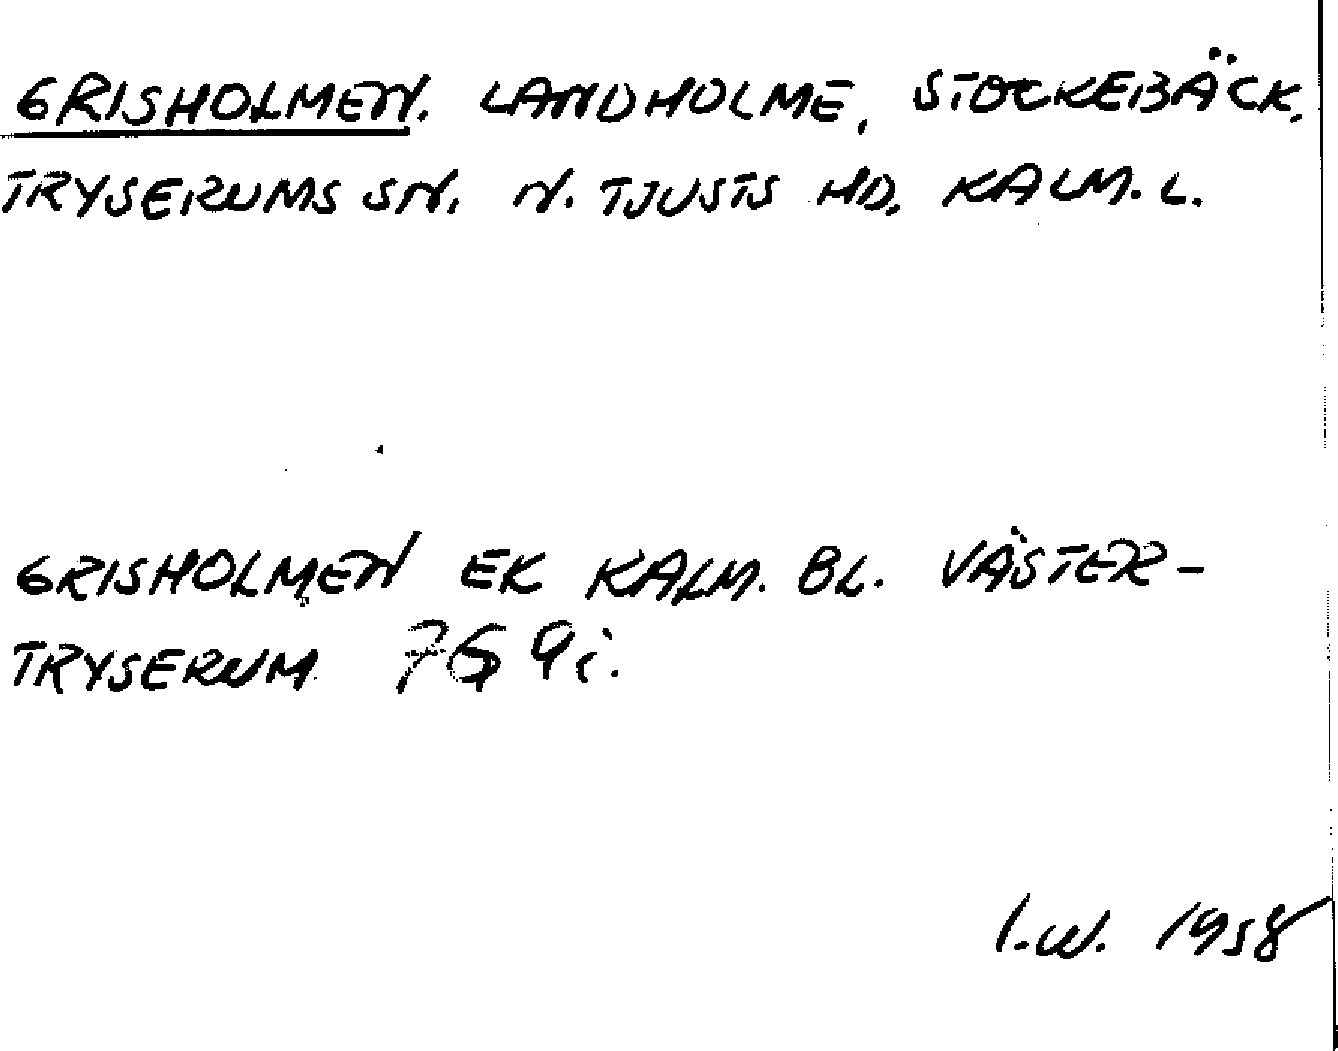 GRISHOLMEN. LANDHOLME, STOCKEBÄCK,
TRYSERUMS SN. N. TJUSTS HD, KALM. L.
GRISHOLMEN EK KALM. BL. VÄSTER-
TRYSERUM 76 9i.
I.W. 1958